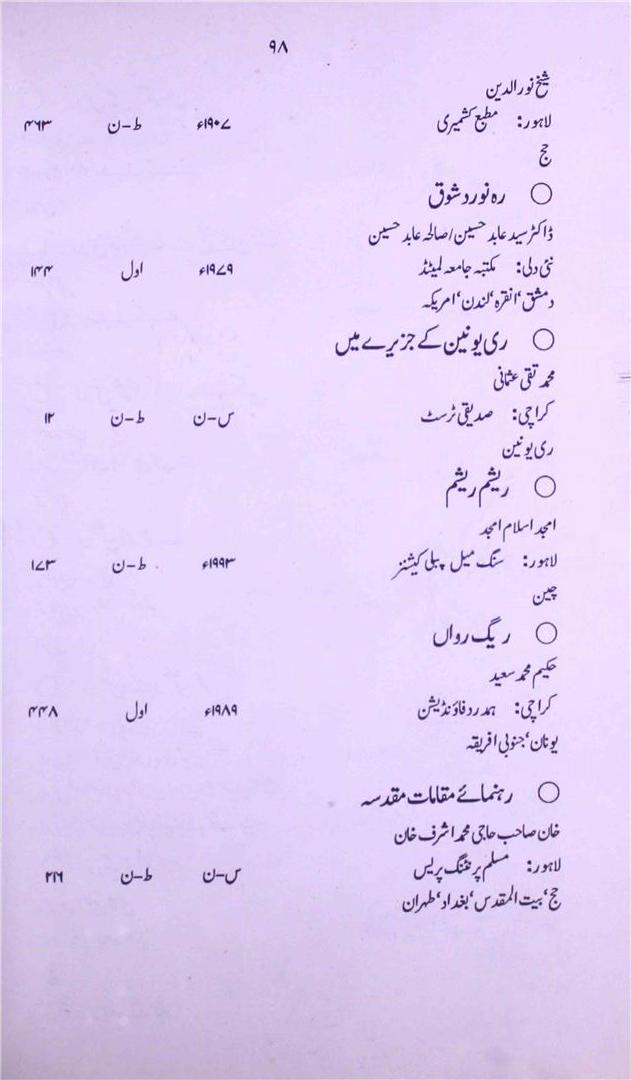 ۹۸
شیخ نور الدین
لاہور: مطبع کشمیری ۱۹۰۷ء ط-ن ۴۶۳
حج
○ رہ نورد شوق
ڈاکٹر سید عابد حسین/صالحہ عابد حسین
نئی دلی: مکتبہ جامعہ لمیٹڈ ۱۹۷۹ء اول ۱۴۴
دمشق‘ انقرہ‘ لندن‘ امریکہ
○ ری یونین کے جزیرے میں
محمد تقی عثمانی
کراچی: صدیقی ٹرسٹ س-ن ط-ن ۱۲
ری یونین
○ ریشم ریشم
امجد اسلام امجد
لاہور: سنگ میل پبلی کیشنز ۱۹۹۳ء ط-ن ۱۷۳
چین
○ ریگ رواں
حکیم محمد سعید
کراچی: ہمدرد فاؤنڈیشن ۱۹۸۹ء اول ۴۴۸
یونان‘ جنوبی افریقہ
○ رہنمائے مقامات مقدسہ
خان صاحب حاجی محمد اشرف خان
لاہور: مسلم پرنٹنگ پریس س-ن ط-ن ۲۱۶
حج‘ بیت المقدس‘ بغداد‘ طہران